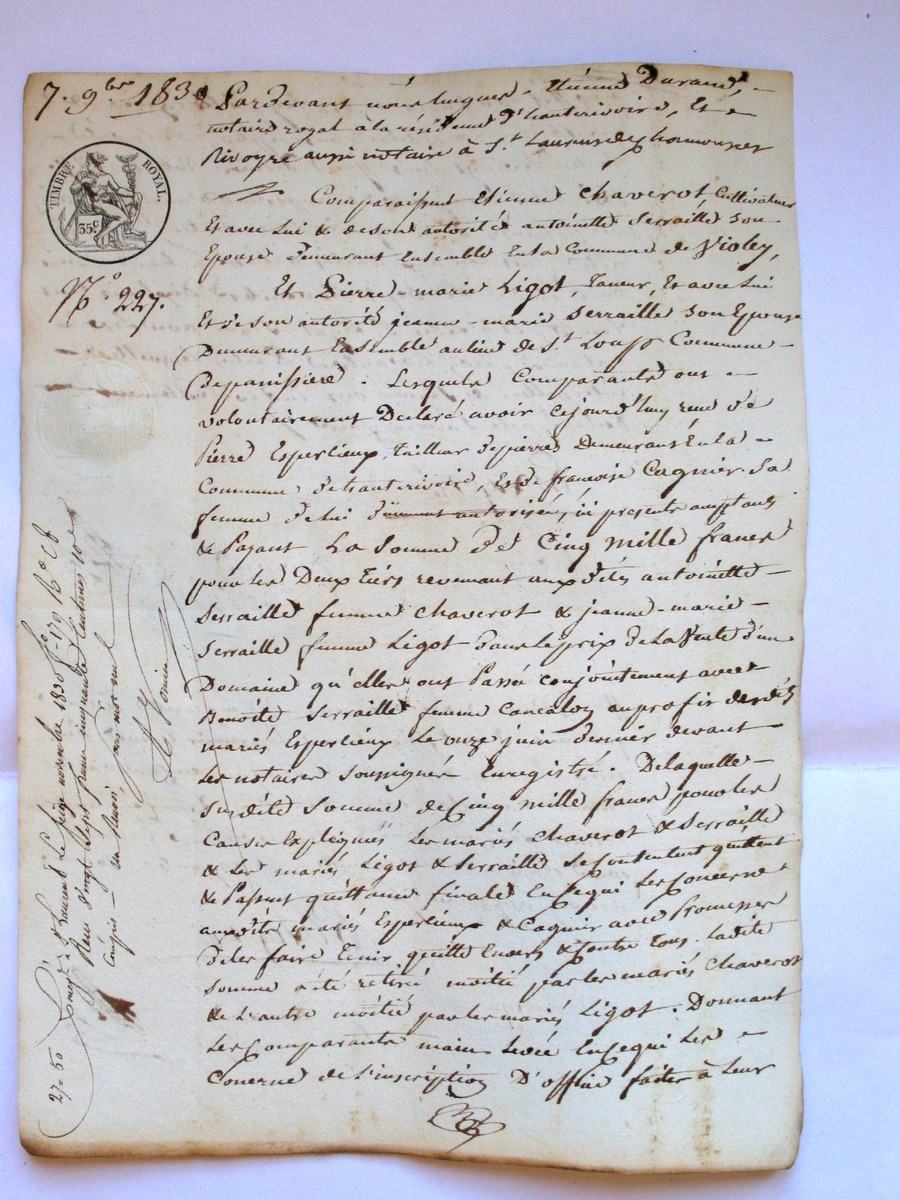 7. 9bre 1830
Pardevant nous soussignés Etienne Durand,
notaire royal à la résidence d'hauterivoire, Et
Rivoyre aussi notaire à St Laurent de chamousset
TIMBRE ROYAL.
35c
Comparaissent Etienne Chaverot Cultivateur
Et avec Lui & de son autorité antoinette Serraille Son
Epouse demeurant Ensemble En la Commune de Violey,
No 227.
Et Pierre-marie Ligot, Et avec Lui
Et de son autorité jeanne-marie Serraille Son Epouse
Demeurant Ensemble au lieu de St Loup Commune
de panissiere. Lesquels Comparants ont
volontairement Déclaré avoir cejourd'huy reçu de
Pierre Esperlieux, tailleur de pierres Demeurant En la
Commune d'hauterivoire, Et de françoise Cagnier Sa
femme de lui düement autorisée, ici présents acceptants
& Payant La Somme de Cinq mille francs
pour les Deux tiers revenant aux dites antoinette
Serraille femme Chaverot & jeanne-marie
Serraille femme Ligot dans le prix de La Vente d'un
Domaine qu'elles ont Passée conjointement avec
Benoite Serraille femme au profit desdits
mariés Esperlieux Le onze juin dernier devant
Les notaires soussignés Enregistré. De laquelle
susdite Somme de Cinq mille francs pour les
Causes Expliquées Les mariés Chaverot & Serraille
& Les mariés Ligot & Serraille Se Contentent quittent
& Passent quittance finale En Ce qui Les Concerne
auxdits mariés Esperlieux & Cagnier avec Promesse
de les faire tenir quitte Envers & Contre Tous. Ladite
somme a été retiré moitié par les mariés Chaverot
& L'autre moitié par les mariés Ligot. Donnant
Les Comparants main Levée En Ce qui Les
Concerne de L'inscription D'office faite à Leur
St Laurent Le seize novembre 1830 fo 179 Ro
Reçu vingt Sept francs cinquante Centimes 10e
Compris
27=50